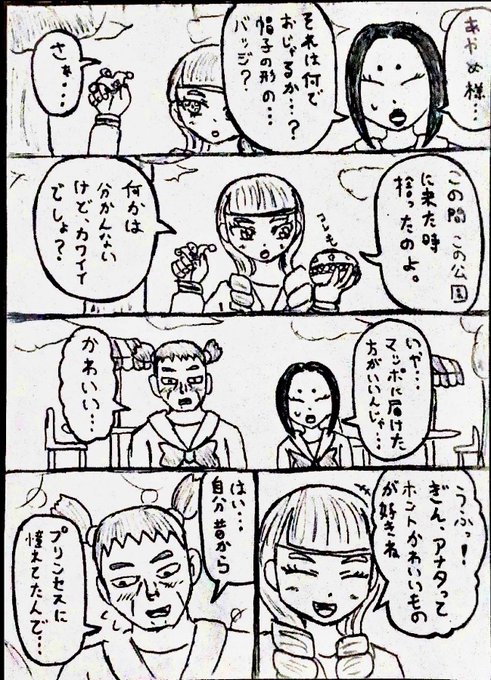 あやめ様…
それは何で
おじゃるか…?
帽子の形の…
バッジ?
さぁ…
この間 この公園
に来た時
拾ったのよ。
コレも
何かは
分かんない
けど、カワイイ
でしょ?
いや…
マッポに届けた
方がいいんじゃ…
かわいい…
うふっ!
ぎん、アナタって
ホントかわいいもの
が好きね
はい…
自分昔から
プリンセスに
憧れてたんで…